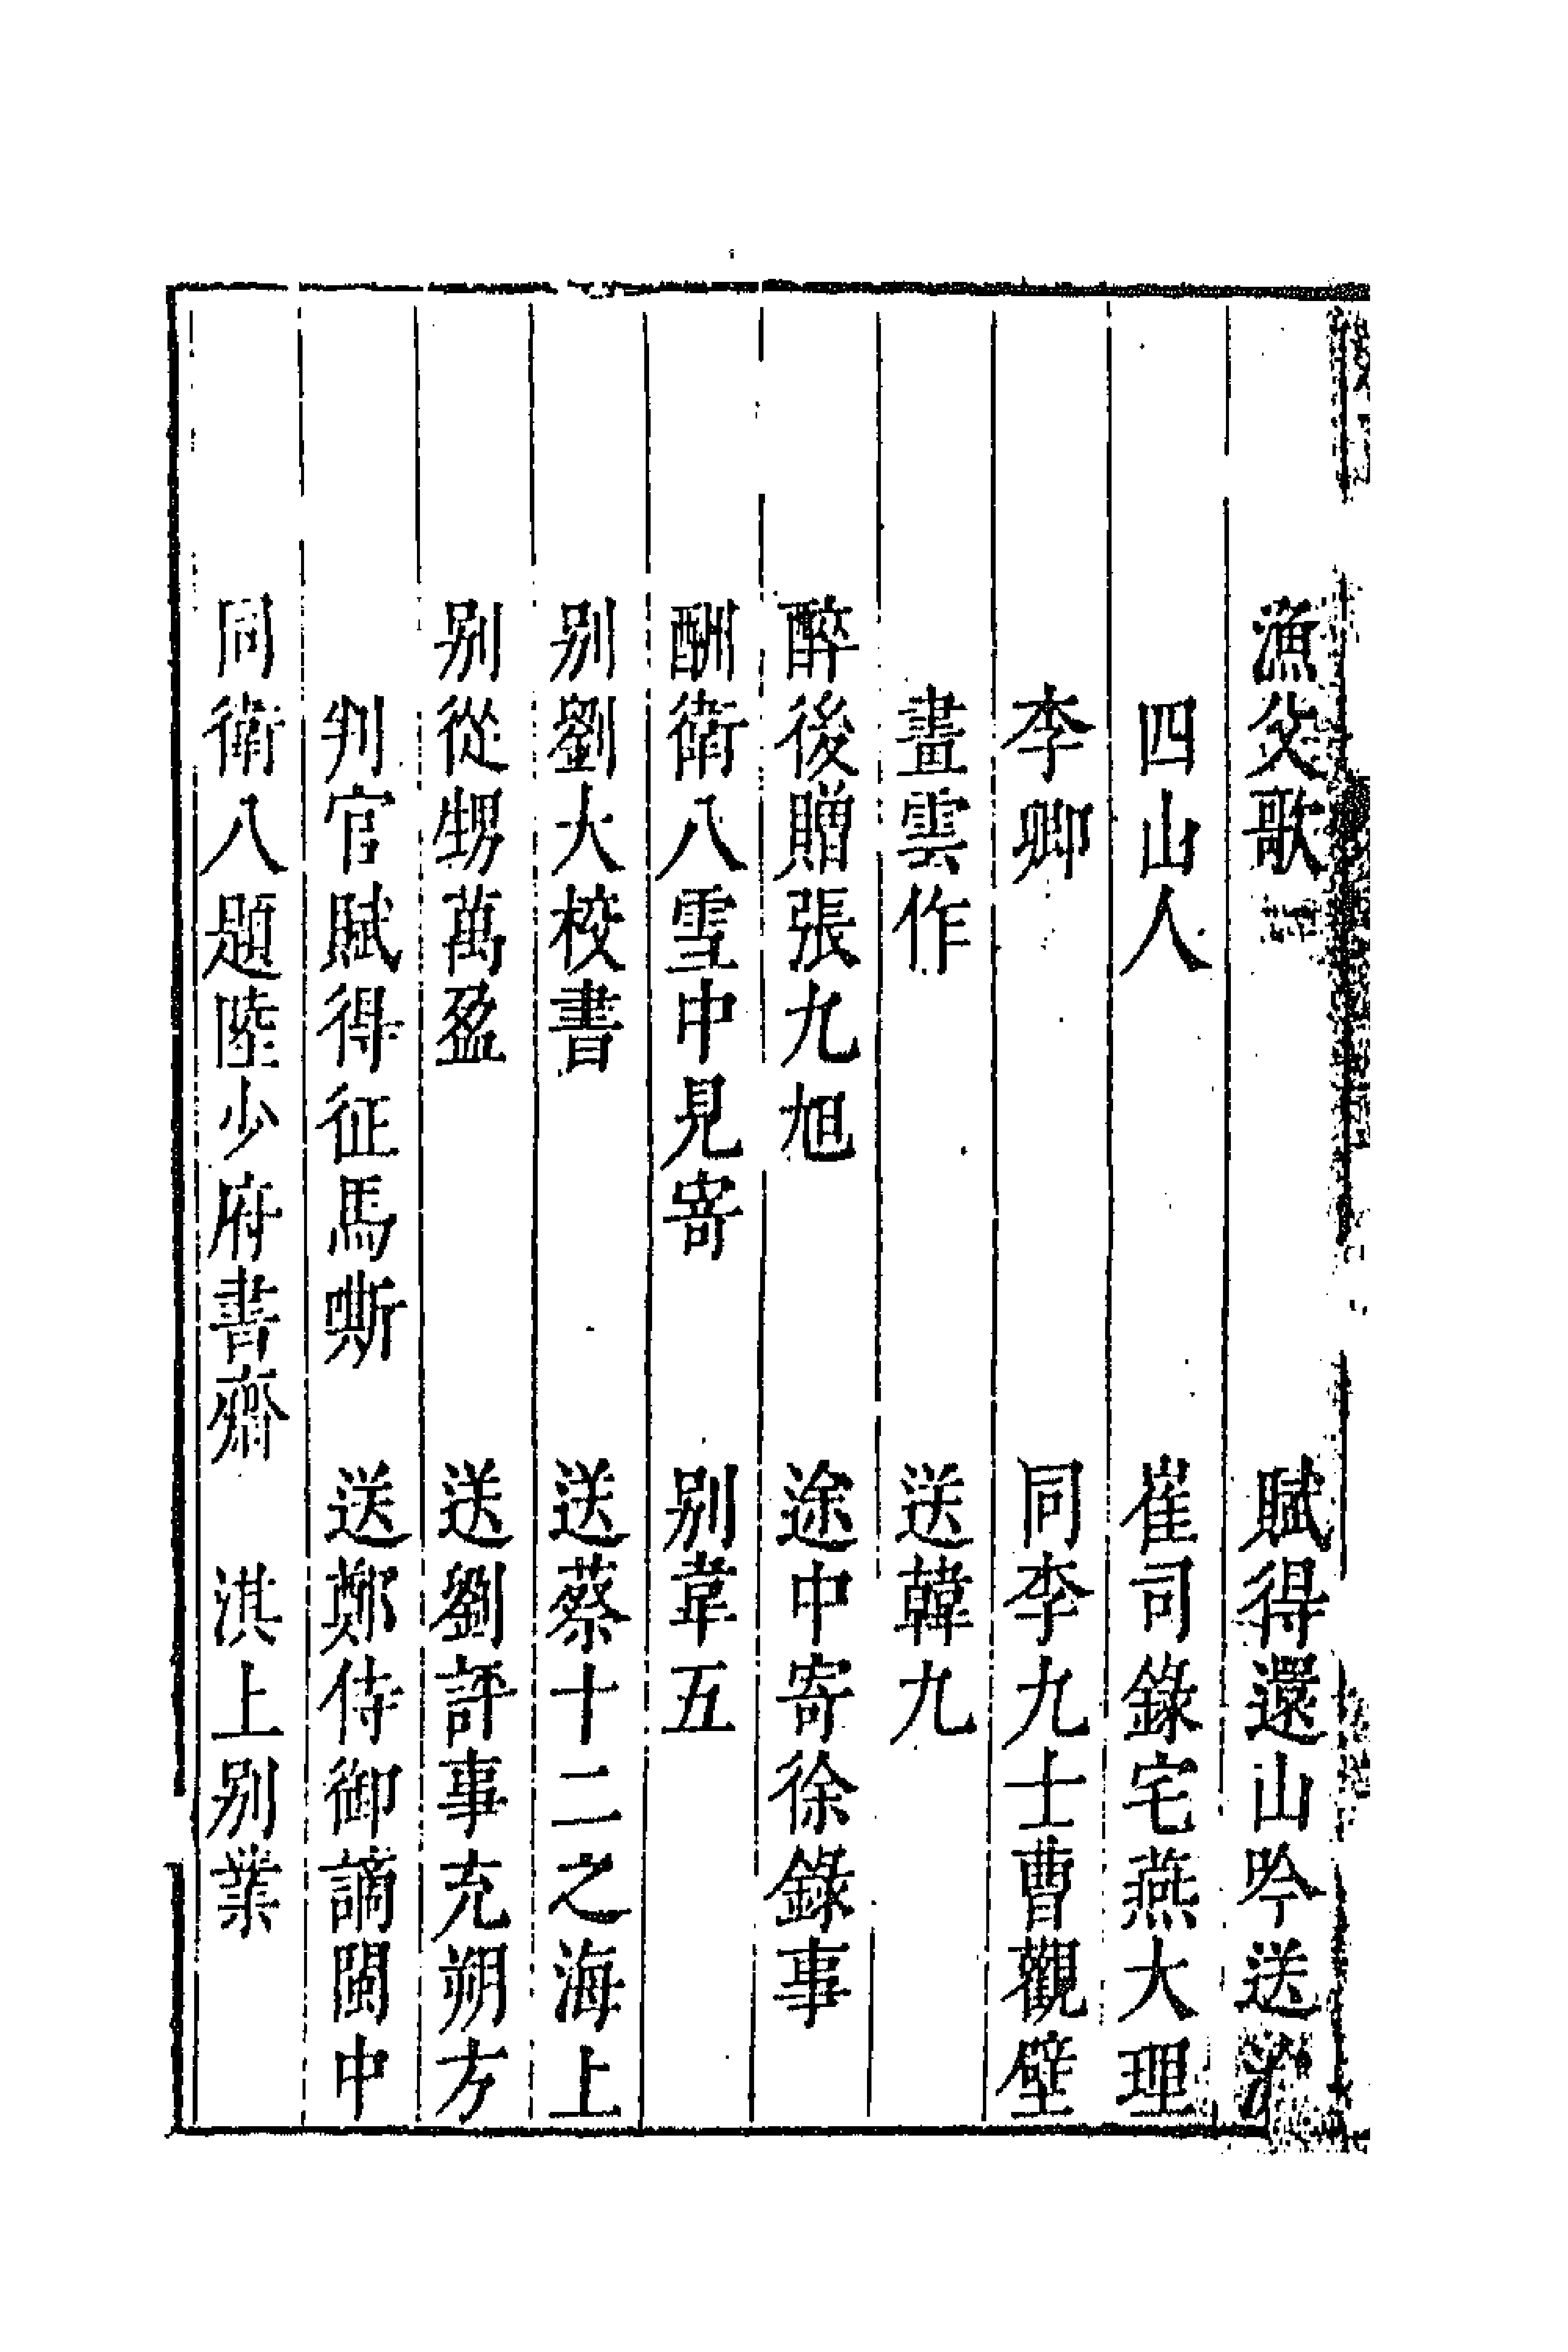 漁父歌　賦得還山吟送沈
四山人　崔司錄宅燕大理
李卿　同李九士曹觀壁
畫雲作　送韓九
醉後贈張九旭　途中寄徐錄事
酬衛八雪中見寄　别韋五
别劉大校書　送蔡十二之海上
别從甥萬盈　送劉評事充朔方
判官賦得征馬嘶　送鄭侍御謫閩中
同衛八題陸少府書齋　淇上别業